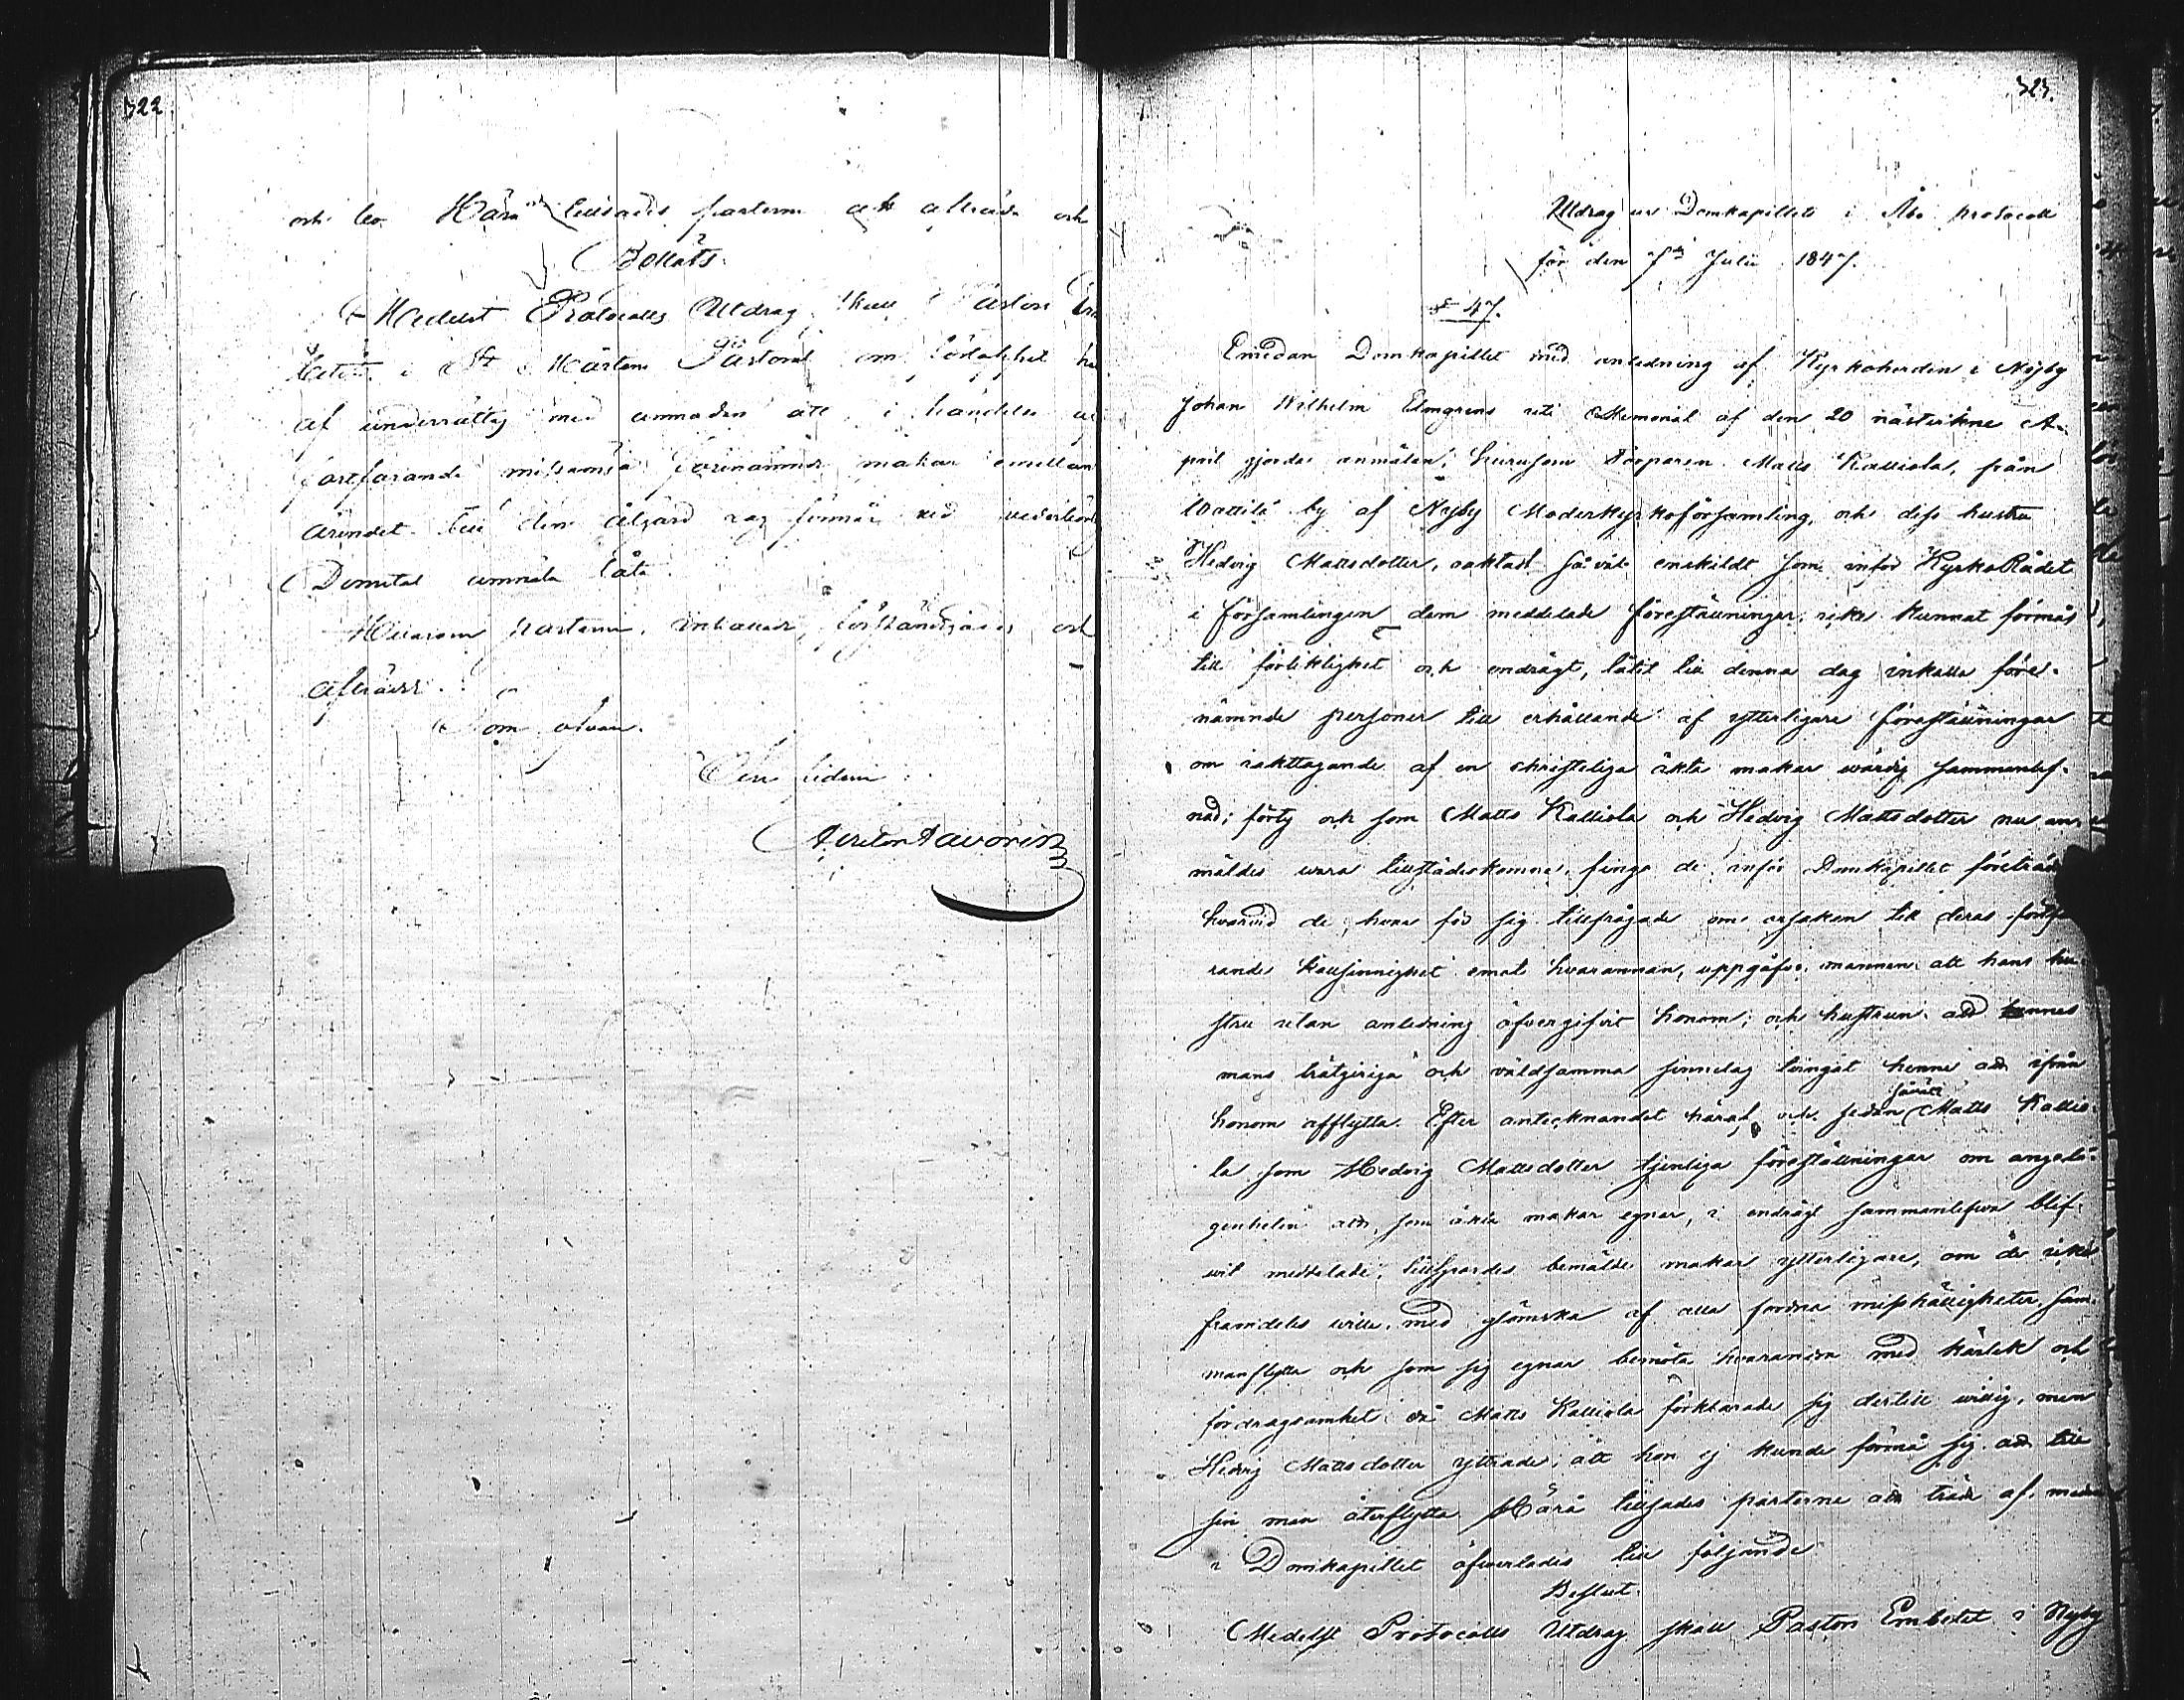 322
och leo. Häri tillsades parterne att afträda och
Beslöts:
Medelst Protocolls Utdrag skall Pastors Em-
betet i S:t Mårtens Pastorat om förloppet här
af underrättas med anmodan att i händelse af
fortfarande missämja förenämnde makar emellan
ärendet till den åtgärd lag förmår vid vederbörlig
Domstol anmäla låta.
Hvarom parterne, inkallade, förständigades och
afträdde.
Som ofvan.
In fidem
323.
Utdrag ur Domkapitlets i Åbo protocoll
för den 7de Julii 1847.
§ 47.
Emedan Domkapitlet med anledning af Kyrkoherden i Nyby
Johan Wilhelm Elmgrens uti Memorial af den 20 nästvikne A-
pril gjorda anmälan, hurusom torparen Matts Kalliola, från
Wallila by af Nyby Moderkyrkoförsamling, och dess hustru
Hedvig Mattsdotter, oaktadt så väl enskildt som inför KyrkoRådet
i församlingen dem meddelade föreställningar, icke kunnat förmås
till förliklighet och endrägt, låtit till denna dag inkalla före-
nämnde personer till erhållande af ytterligare föreställningar
om iakttagande af en christeliga äkta makar wärdig sammanlef-
nad; förty och som Matts Kalliola och Hedvig Mattsdotter nu an-
mäldes wara tillstädeskomne, fingo de inför Domkapitlet företräda
hvarvid de, hvar för sig tillfrågade om orsaken till deras fortfa
rande kallsinnighet emot hvarannan, uppgåfvo: mannen att hans hu-
stru utan anledning öfvergifvit honom; och hustrun att hennes
mans trätgiriga och våldsamma sinnelag tvingat henne att ifrån
honom afflytta. Efter antecknandet häraf, och sedan såväl Matts Kallio-
la som Hedvig Mattsdotter tjenliga föreställningar om angelä-
genheten att, som äkta makar egnar, i endrägt sammanlefva blif-
vit meddelade, tillsporde bemälde makar ytterligare, om de icke
framdeles wille, med glömska af alla fordna misshälligheter, sam-
manflytta och som sig egnar bemöta hvarandra med kärlek och
fördragsamhet; då Matts Kalliola förklarade sig dertill willig, men
Hedvig Mattsdotter yttrade, att hon ej kunde förmå sig att till
sin man återflytta. Härå tillsades parterne att träda af, medan
i Domkapitlet öfverlades till följande
Beslut:
Medelst Protocolls Utdrag skall Pastors Embetet i Nyby